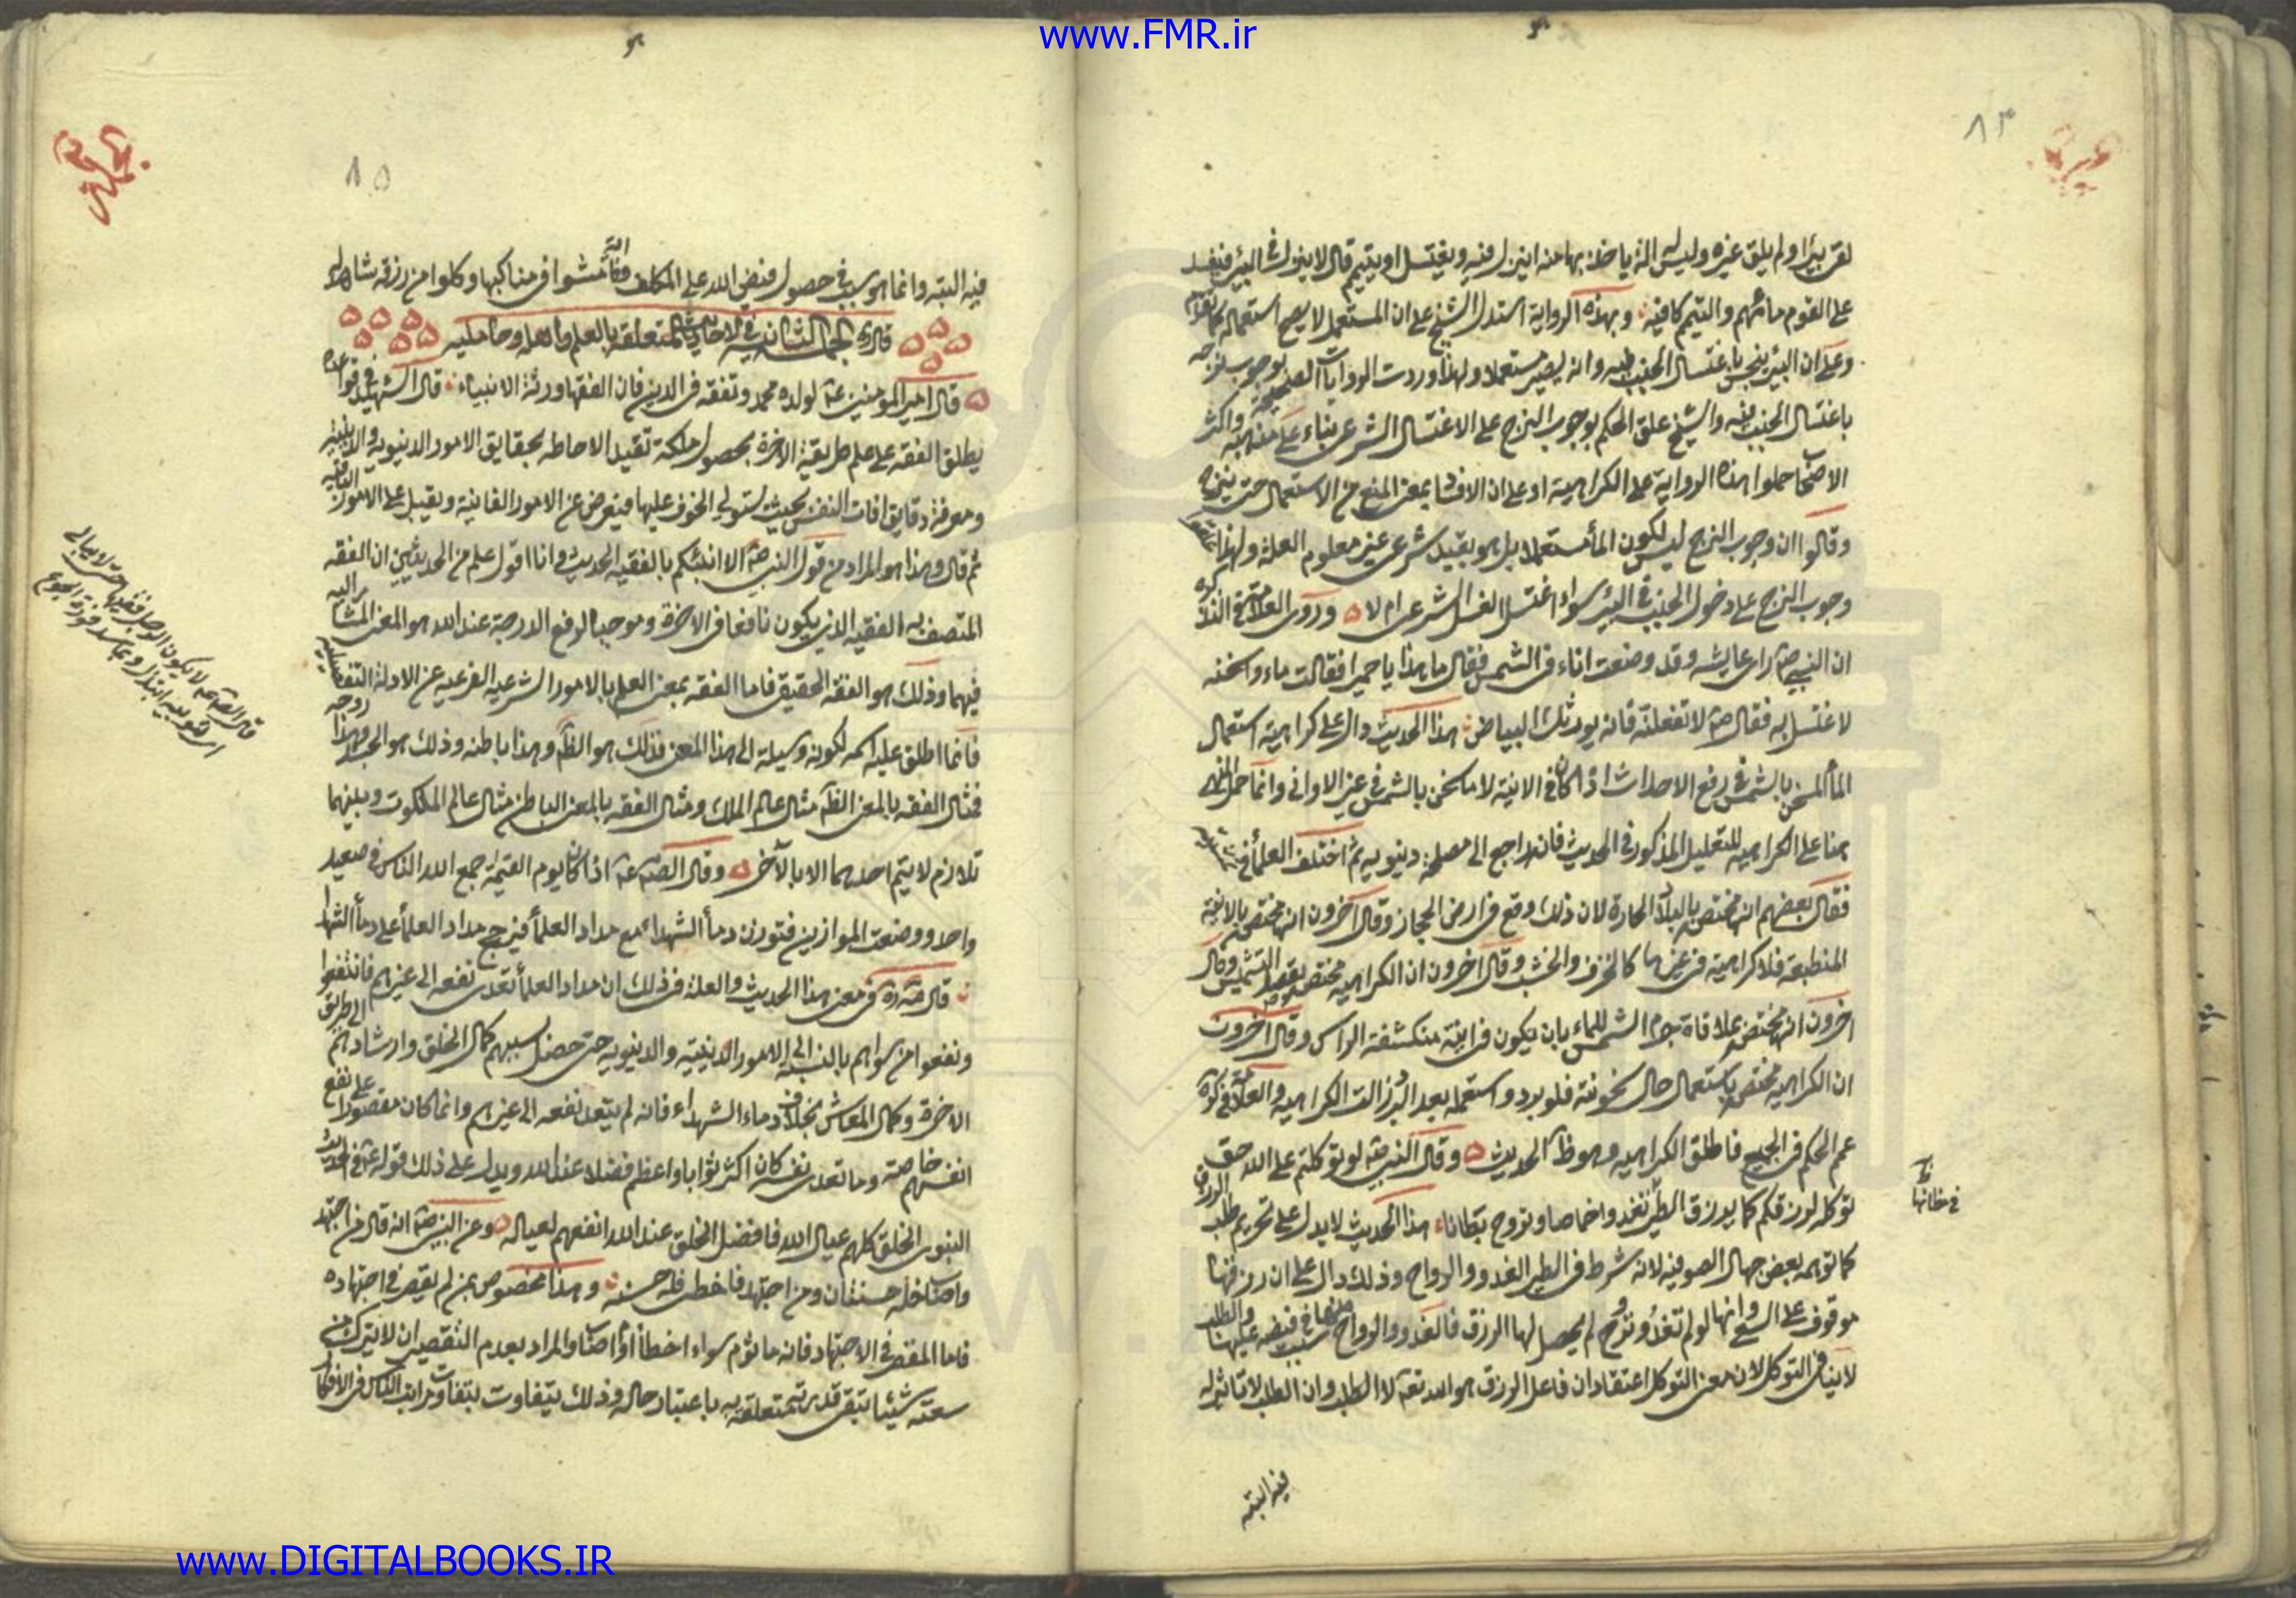 www.FMR.ir
٨٣
لقربئرا ولم يلق غيره وليس له انه ياخذ بها منه اينزل فيه ويغتسل او يتيمم قال لا ينزل في البئر فيفسد
على القوم مائهم والتيمم كافيه وبهذه الرواية استدل الشيخ على ان المستعمل لا يصح استعماله
وعلى ان البئر ينجس باغتسال الجنب فيه وانه يصير مستعملا ولهذا وردت الروايات الصحيحة بوجوب نزحه
باغتسال الجنب فيه والشيخ علق الحكم بوجوب النزح على الاغتسال الشرعي بناء على مذهبه واكثر
الاصحاب حملوا هذه الرواية على الكراهية او على ان الافساد بمعنى المنع من الاستعمال حتى ينزح
وقالوا ان وجوب النزح ليس لكون الماء مستعملا بل هو تعبد شرعي غير معلوم العلة ولهذا
وجوب النزح على دخول الجنب في البئر سواء اغتسل الغسل الشرعي ام لا وروى العلامة في التذكرة
ان النبي ص راى عايشه وقد وضعت اناء في الشمس فقال ما هذا يا حميرا فقالت ماء واسخنه
لاغتسل به فقال ص لا تفعلنه فانه يورثك البياض هذا الحديث دال على كراهية استعمال
الماء المسخن بالشمس في رفع الاحداث اذا كان في الانية لا ما سخن بالشمس في غير الاواني وانما حمل النهي
هنا على الكراهيه للتعليل المذكور في الحديث فانه راجع الى مصلحة دينويه ثم اختلف العلماء في
فقال بعضهم انه مختص بالبلاد الحارة لان ذلك وقع في ارض الحجاز وقال آخرون انه مختص بالانية
المنطبعة فلا كراهية في غيرها كالخزف والخشب وقال اخرون ان الكراهيه مختص بقصد التشميس وقال
اخرون انه مختص بملاقاة جرم الشمس للماء بان يكون في انية منكشفة الراس وقال آخرون
ان الكراهيه مختص باستعمال حال سخونته فلو برد واستعمله بعد البرد زالت الكراهيه والعلامة في التذكرة
عمم الحكم في الجميع فاطلق الكراهيه وهو ظ الحديث وقال النبي ص لو توكلتم على الله حق
توكله لرزقكم كما يرزق الطير تغدوا خماصا وتروح بطانا هذا الحديث لا يدل على تحريم طلب الرزق
كما توهمه بعض جهال الصوفيه لانه شرط في الطير الغدو والرواح وذلك دال على ان رزقها
موقوف على السعي وانها لو لم تغد وتروح لم يحصل لها الرزق فالغدو والرواح سبب في فيضه عليها والطلب
لا ينافي التوكل لان معنى التوكل اعتقاد ان فاعل الرزق هو الله تعه لا الطلب وان الطلب لا تاثير له
فيه البته
٨٥
فيه البته وانما هو سبب في حصول فيض الله على المكلف وقال الله فامشوا في مناكبها وكلوا من رزقه
قال ره الجملة الثانية في الاحاديث المتعلقة بالعلم واهله وحامليه
قال امير المومنين ع لولده محمد وتفقه في الدين فان الفقها ورثة الانبياء قال الشهيد في قواعده
يطلق الفقه على علم طريقة الاخرة بحصول ملكة تفيد الاحاطه بحقايق الامور الدنيويه والدينية
ومعرفة دقايق افات النفس بحيث يستولى الخوف عليها فيعرض عن الامور الفانية ويقبل على الامور الباقية
ثم قال وهذا هو المراد من قول النبي ص الا انبئكم بالفقيه الحديث وانا اقول علم من الحديثين ان الفقه
المتصف به الفقيه الذي يكون نافعا في الاخرة وموجبا لرفع الدرجة عند الله هو المعنى المشار اليه
فيهما وذلك هو الفقه الحقيقي فاما الفقه بمعنى العلم بالامور الشرعيه الفرعيه عن الادلة التفصيليه
فانما اطلق عليه اسمه لكونه وسيلة الى هذا المعنى فذلك هو الظاهر وهذا باطنه وذلك هو الجسد وهذا روحه
فمثال الفقه بالمعنى الظاهر مثال عالم الملك ومثال الفقه بالمعنى الباطن مثال عالم الملكوت وبينهما
تلازم لا يتم احدهما الا بالآخر وقال الصادق ع اذا كان يوم القيمة جمع الله الناس في صعيد
واحد ووضعت الموازين فتوزن دماء الشهداء مع مداد العلماء فيرجح مداد العلماء على دماء الشهدا
قال ره في معنى هذا الحديث والعلة في ذلك ان مداد العلماء تعدى نفعه الى غيرهم فانتفعوا
ونفعوا من سواهم بالنسبة الى الامور الدينية والدنيويه حتى حصل بسببهم كمال الخلق وارشادهم الى طريق
الاخرة وكمال المعاش بخلاف دماء الشهداء فانه لم يتعد نفعه الى غيرهم وانما كان مقصورا على نفع
انفسهم خاصة وما تعدى نفعه كان اكثر ثوابا واعظم فضلا عند الله ويدل على ذلك قوله ع في الحديث
النبوى الخلق كلهم عيال الله فافضل الخلق عند الله انفعهم لعياله وعن النبي ص انه قال من اجتهد
واصاب فله حسنتان ومن اجتهد فاخطى فله حسنه وهذا مخصوص بمن لم يقصر في اجتهاده
فاما المقصر في الاجتهاد فانه ماثوم سواء اخطأ او اصاب والمراد بعدم التقصير ان لا يترك من
سعته شيئا تبقى قدرته متعلقة به باعتبار حاله وذلك يتفاوت بتفاوت مراتب الناس في الافكار
www.DIGITALBOOKS.IR